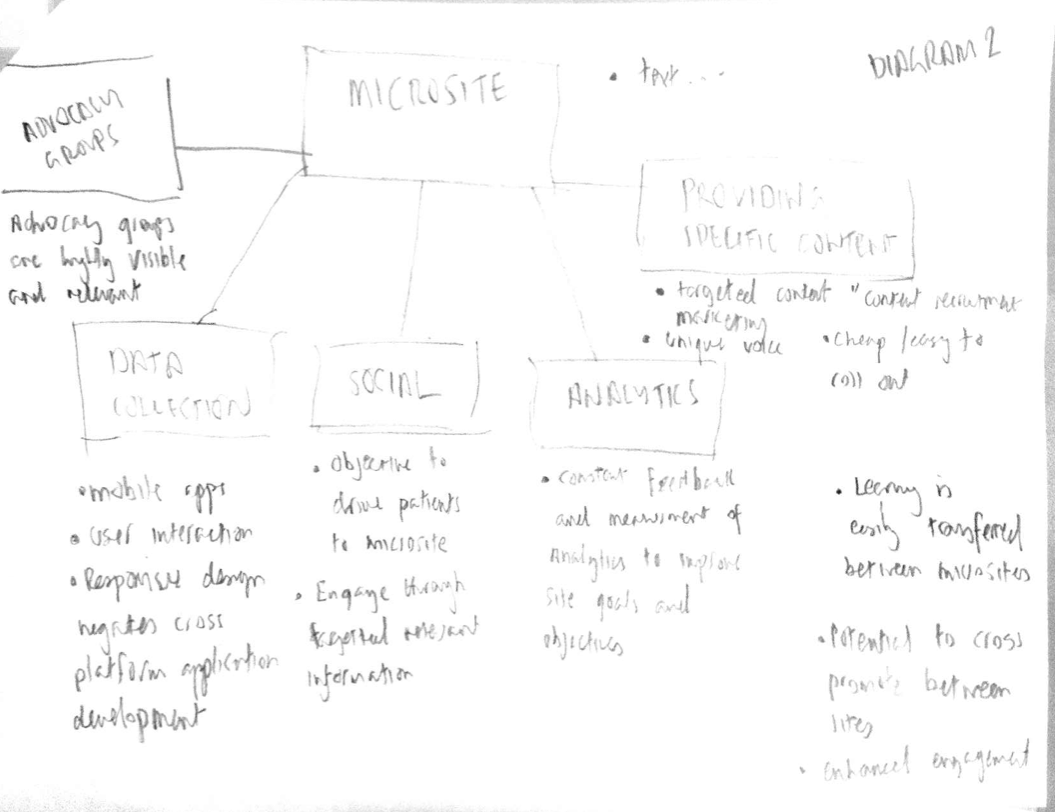 DIAGRAM 2
MICROSITE
• text....
ADVOCACY
GROUPS
Advocacy groups
are highly visible
and relevant
PROVIDING
SPECIFIC CONTENT
• targeted content "content recruitment
marketing
• unique voice
• cheap / easy to
roll out
DATA
COLLECTION
• mobile apps
• User interaction
• Responsive design
negates cross
platform application
development
SOCIAL
• Objective to
drive patients
to microsite
• Engage through
targeted relevant
information
ANALYTICS
• constant feedback
and measurment of
Analytics to improve
site goals and
objectives
• Learning is
easily transferred
between microsites
• Potential to cross
promote between
sites
• enhanced engagement